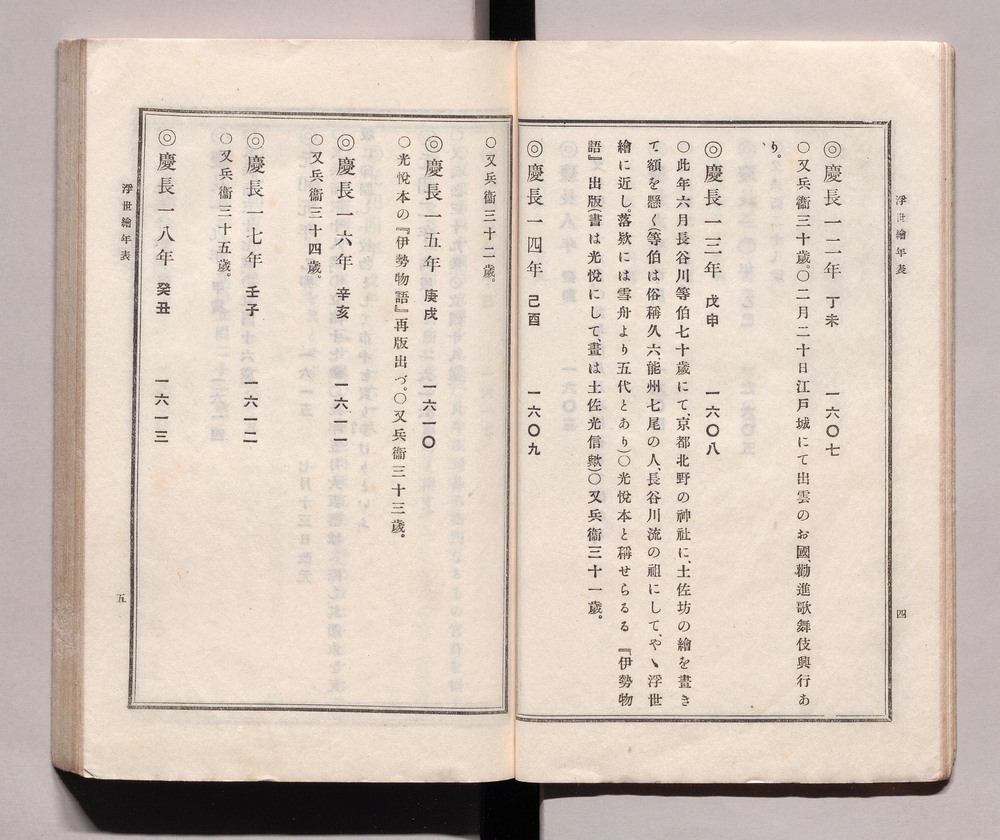 浮世繪年表
四
◎慶長一二年 丁未 一六〇七
〇又兵衞三十歲。〇二月二十日江戶城にて出雲のお國、勸進歌舞伎興行あ
り。
◎慶長一三年 戊申 一六〇八
〇此年六月長谷川等伯七十歲にて、京都北野の神社に、土佐坊の繪を畫き
て額を懸く(等伯は俗稱久六、能州七尾の人、長谷川流の祖にして、やゝ浮世
繪に近し。落欵には雪舟より五代とあり)〇光悅本と稱せらるる『伊勢物
語』出版(書は光悅にして、畫は土佐光信歟)〇又兵衞三十一歲。
◎慶長一四年 己酉 一六〇九
〇又兵衞三十二歲。
◎慶長一五年 庚戌 一六一〇
〇光悅本の『伊勢物語』再版出づ。〇又兵衞三十三歲。
◎慶長一六年 辛亥 一六一一
〇又兵衞三十四歲。
◎慶長一七年 壬子 一六一二
〇又兵衞三十五歲。
◎慶長一八年 癸丑 一六一三
浮世繪年表
五